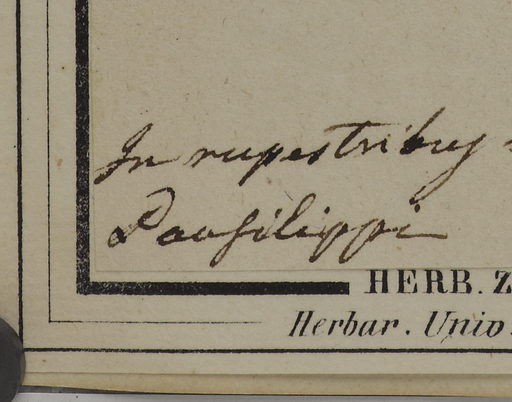 In rupestribus
Pausilippi
HERB. Z
Herbar. Univ.